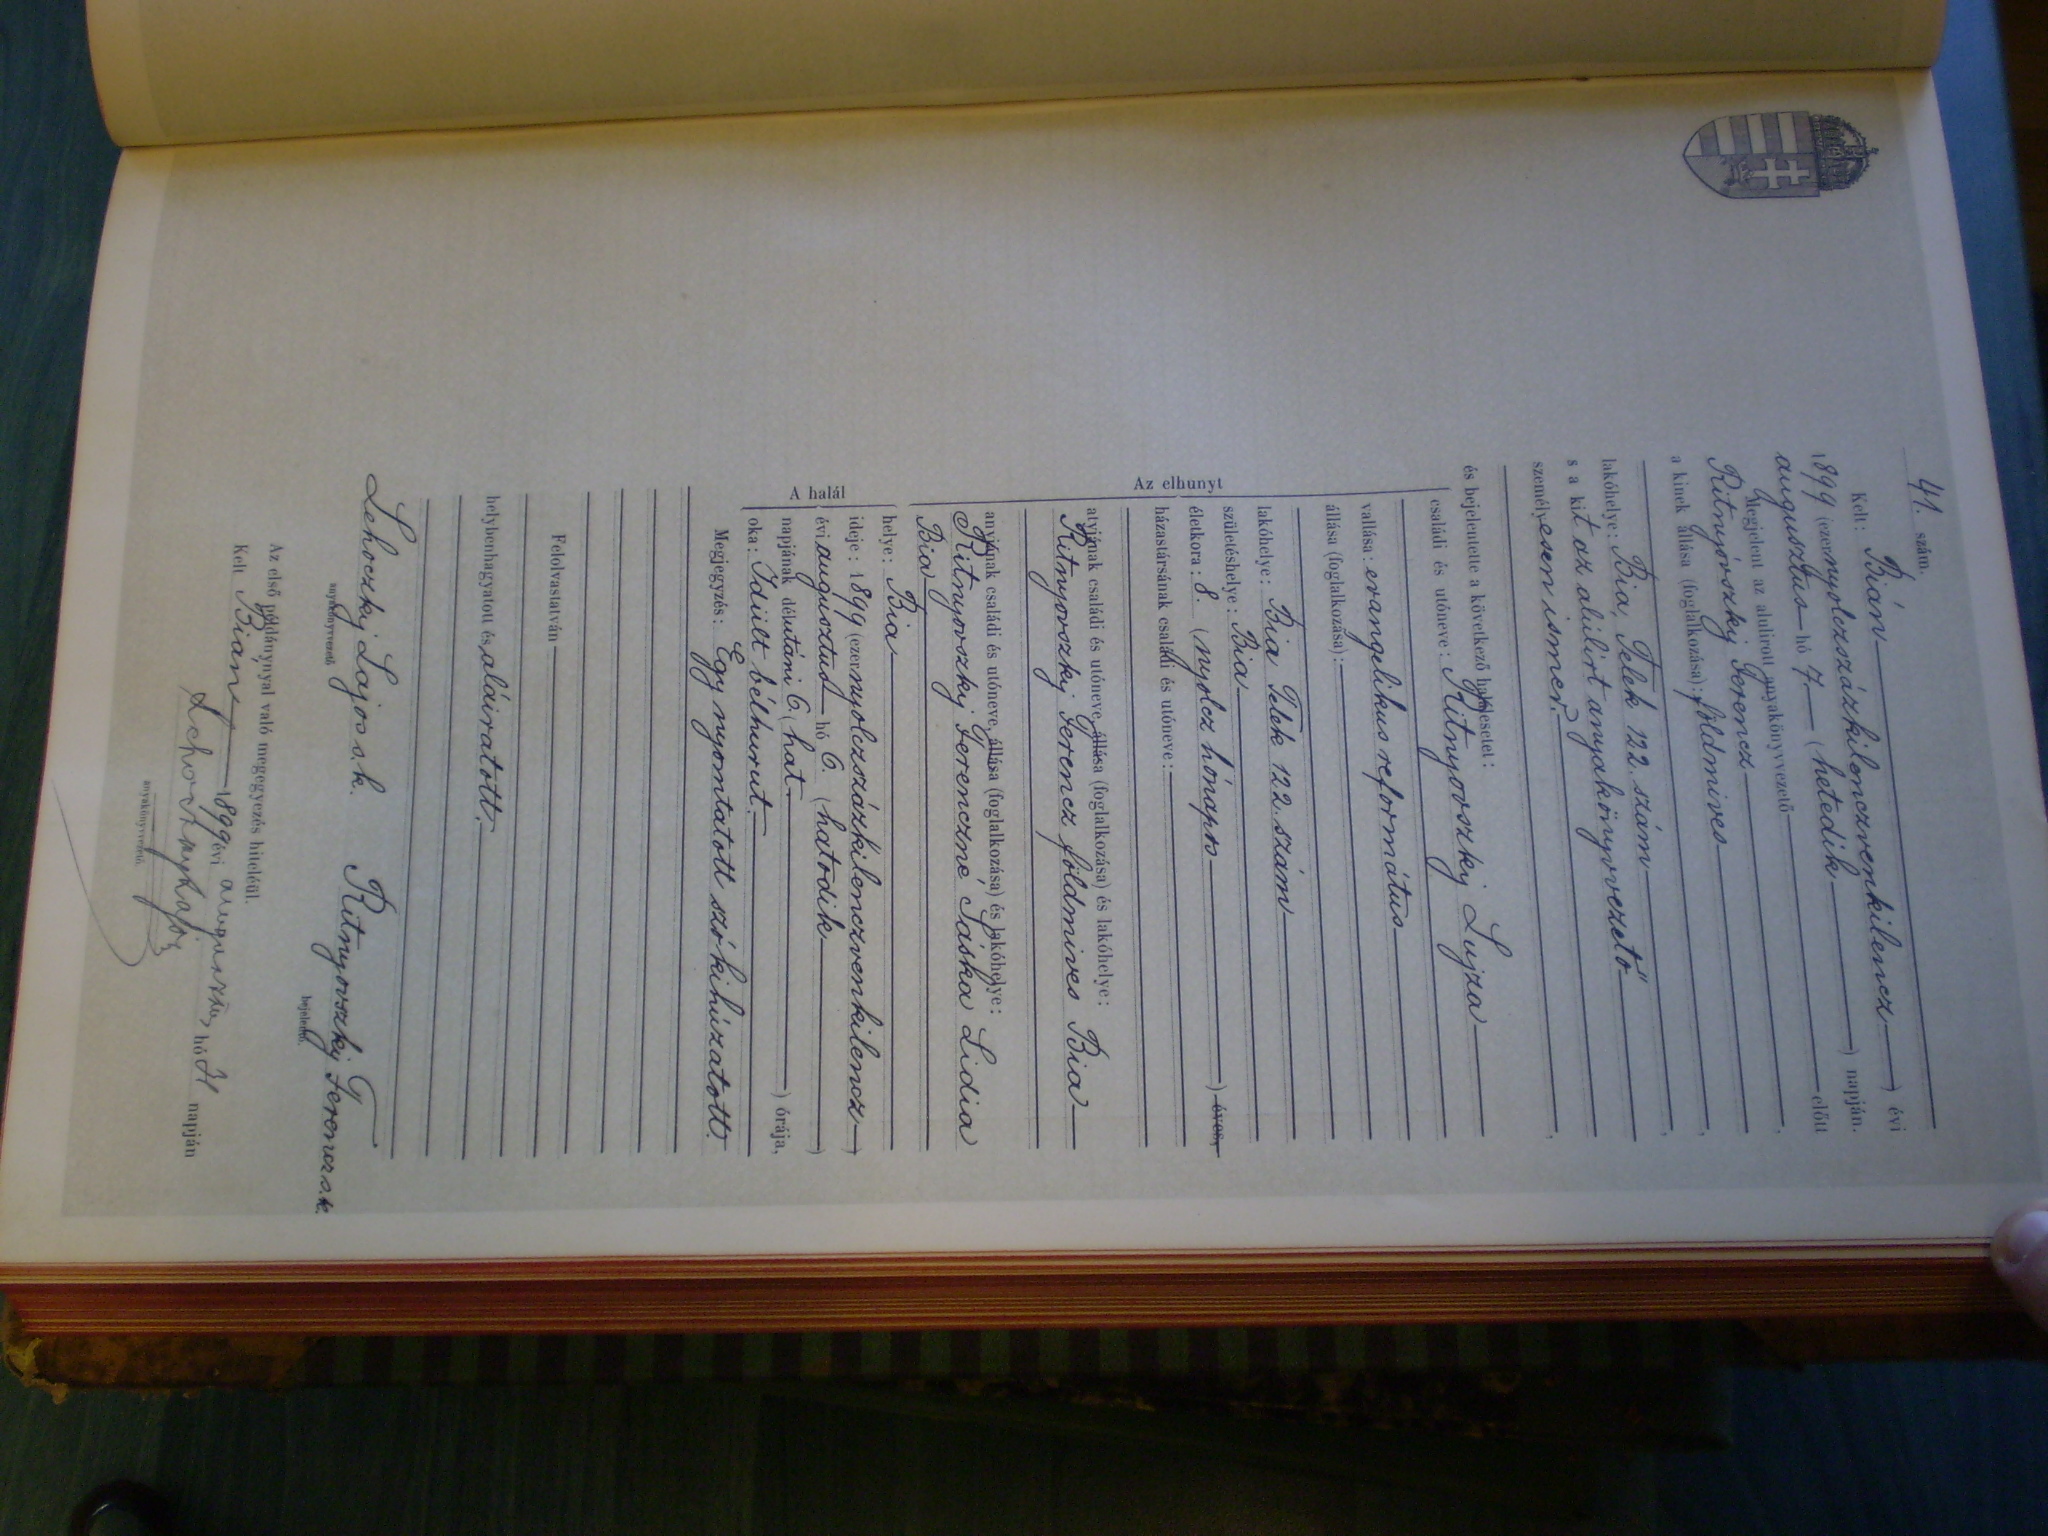 41. szám.
Kelt: Bián
1899 (ezernyolczszázkilenczvenkilencz) évi
augusztus hó 7 (hetedik) napján.
Megjelent az alulirott anyakönyvvezető előtt
Ritnyovszky Ferencz
a kinek állása (foglalkozása): földmives
lakóhelye: Bia, Telek 122. szám
s a kit az alúlirt anyakönyvvezető
személyesen ismer.
és bejelentette a következő halálesetet:
Az elhunyt
családi és utóneve: Ritnyovszky Lujza
vallása: evangelikus református
állása (foglalkozása):
lakóhelye: Bia Telek 122. szám
születéshelye: Bia
életkora: 8. (nyolcz hónapos) éves,
házastársának családi és utóneve:
atyjának családi és utóneve, állása (foglalkozása) és lakóhelye:
Ritnyovszky Ferencz földmives Bia
anyjának családi és utóneve, állása (foglalkozása) és lakóhelye:
Ritnyovszky Ferenczné Sáska Lidia
Bia
A halál
helye: Bia
ideje: 1899 (ezernyolczszázkilenczvenkilencz)
évi augusztus hó 6. (hatodik)
napjának délutáni 6. (hat) órája,
oka: Idült bélhurut.
Megjegyzés: Egy nyomtatott szó kihúzatott.
Felolvastatván
helybenhagyatott és aláiratott.
Lehoczky Lajos s.k. Ritnyovszky Ferencz s.k.
anyakönyvvezető bejelentő.
Az első példánynyal való megegyezés hiteléül.
Kelt Bián 1899 évi augusztus hó napján
Lehoczky Lajos
anyakönyvvezető.